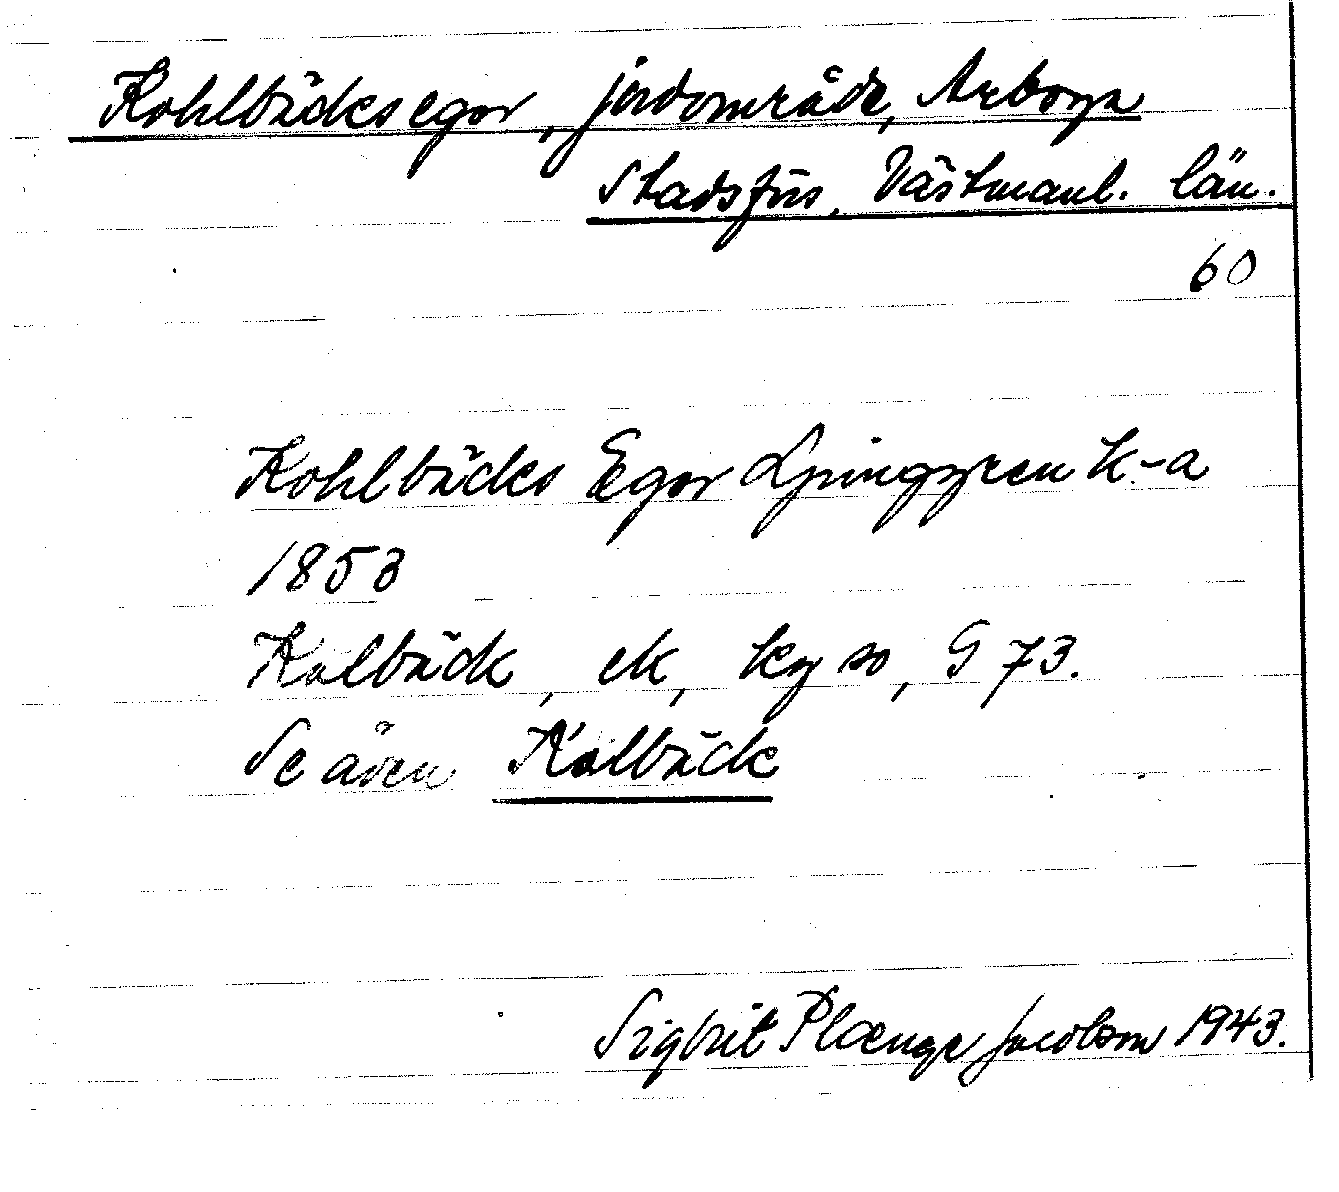 Kohlbäcksegor, jordområde, Arboga
Stadsförs. Västmanl. län.
60
Kohlbäcks Egor Ljunggren k-a
1853
Kolbäck, ek, kg so, G 73.
Se även Kolbäck
Sigbrit Plænge Jacobson 1943.